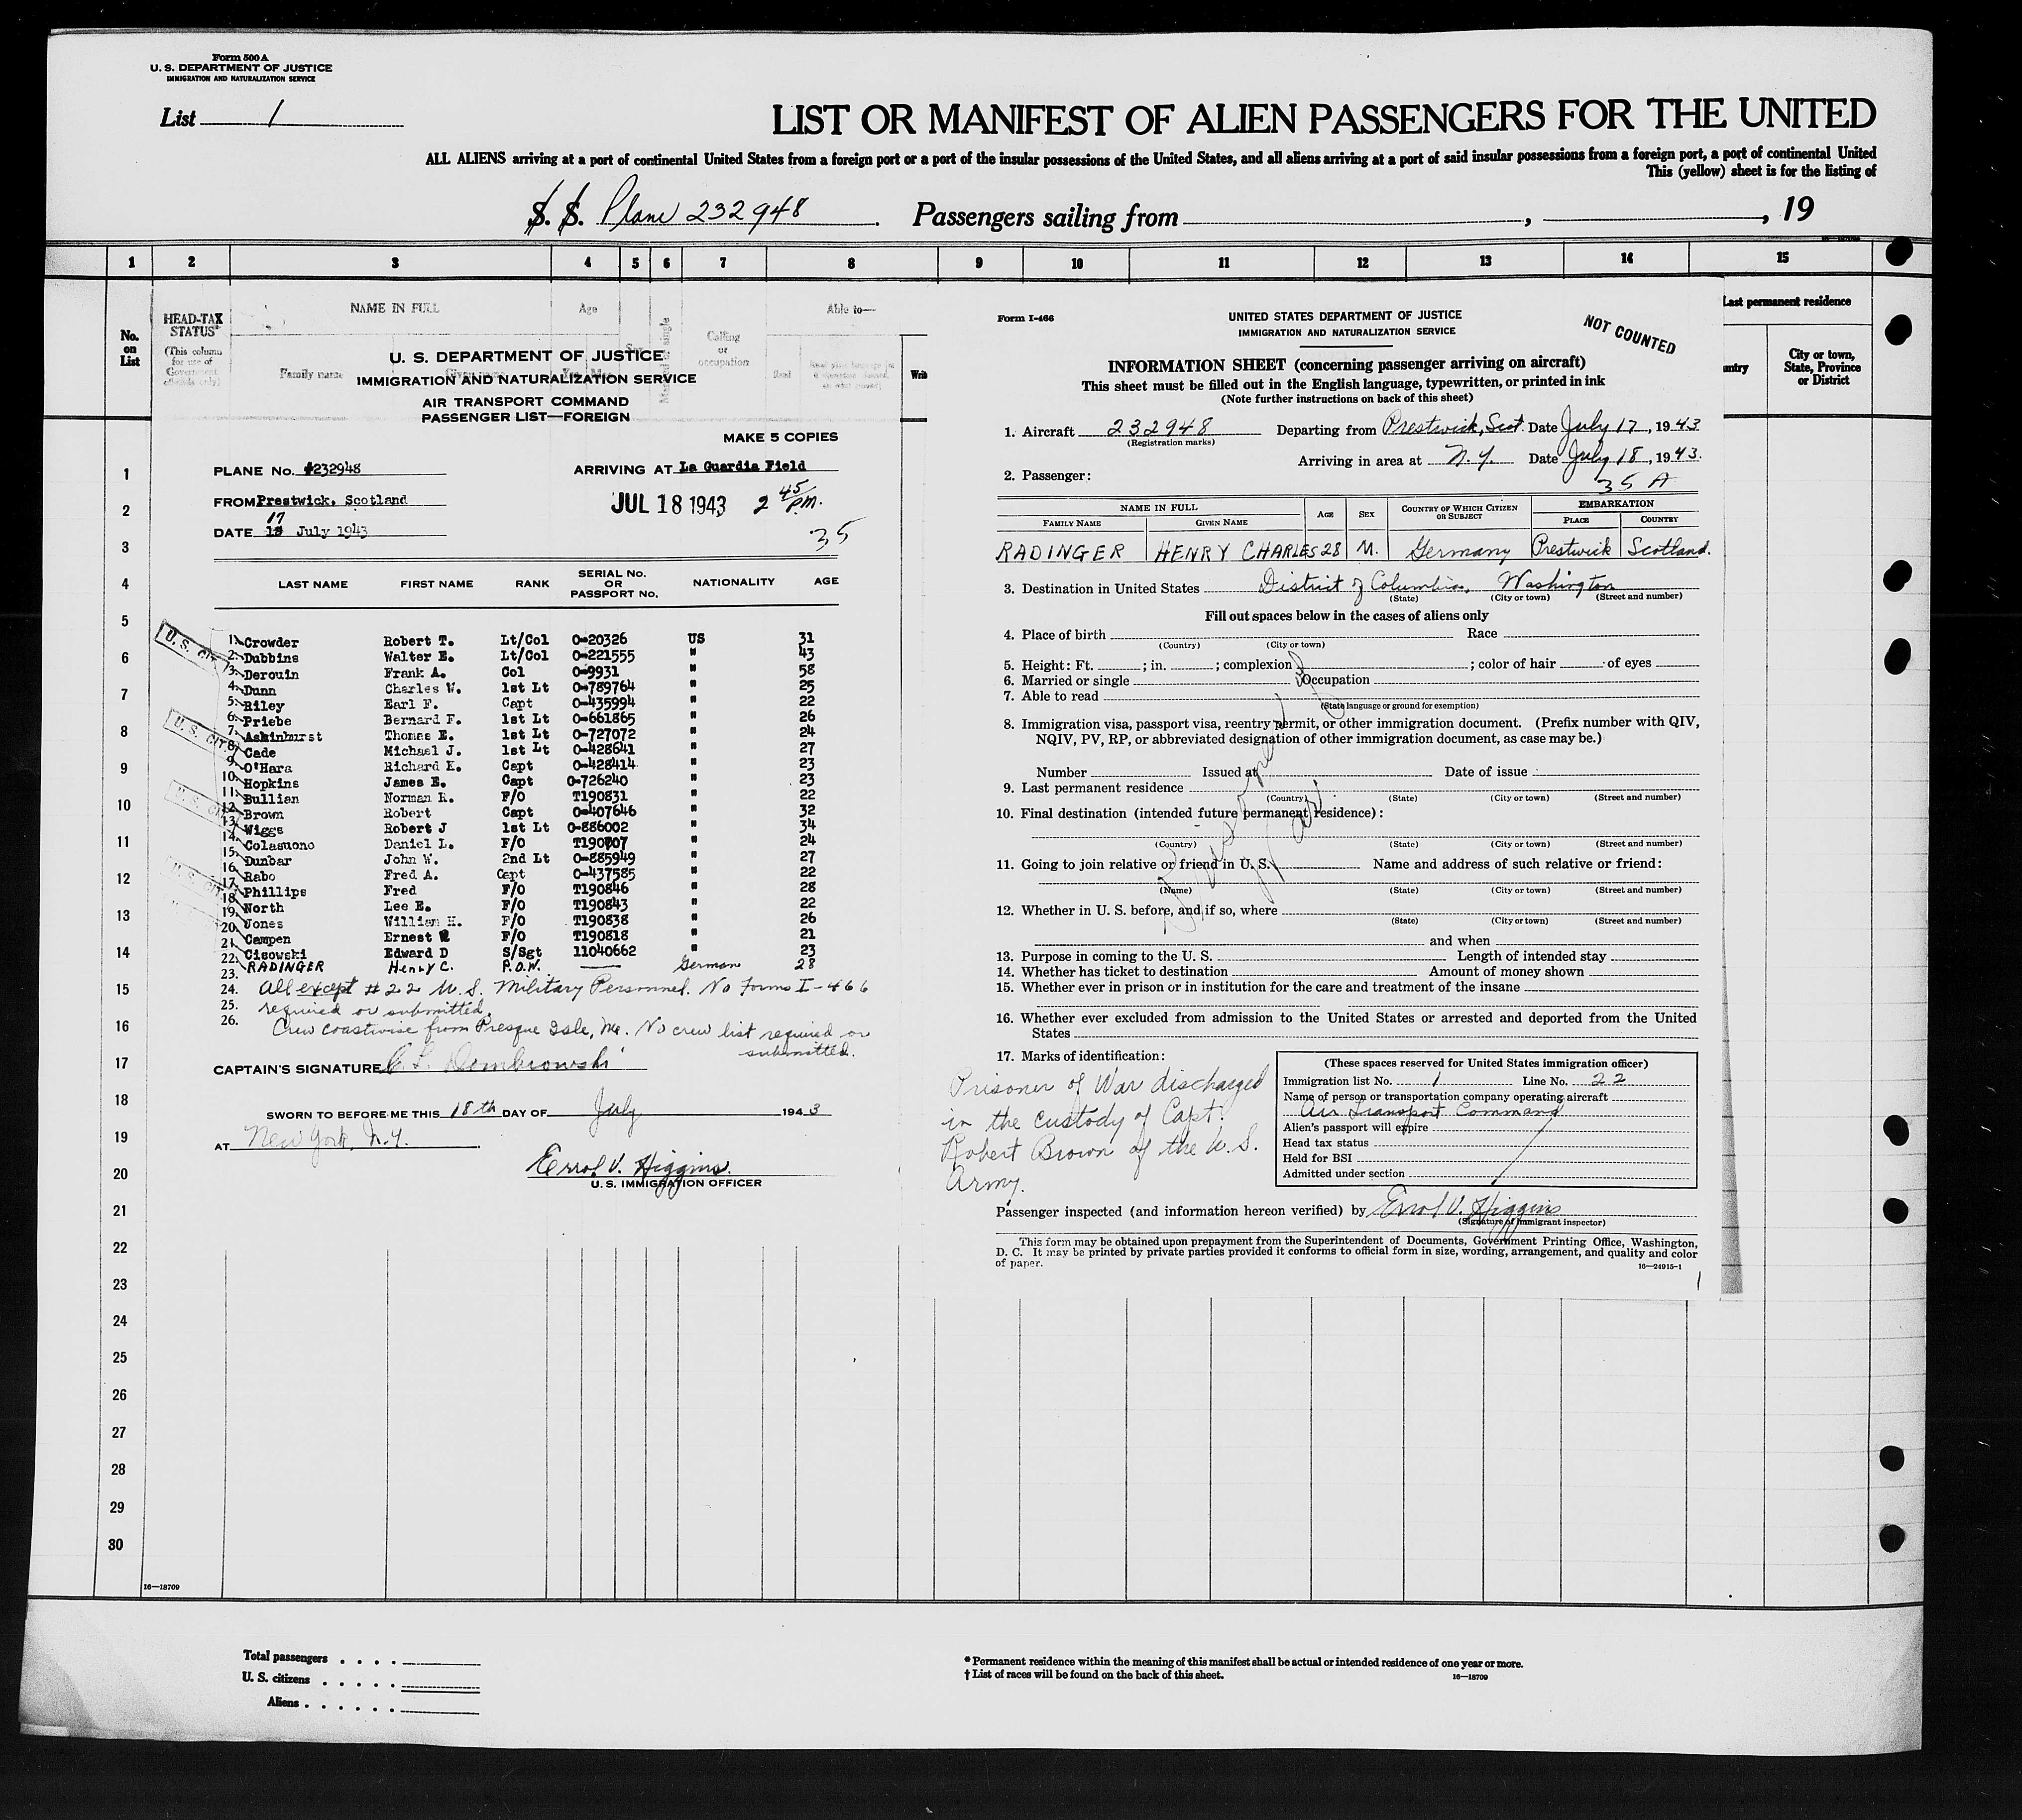 Form 500 A
U. S. DEPARTMENT OF JUSTICE
IMMIGRATION AND NATURALIZATION SERVICE
List 1
LIST OR MANIFEST OF ALIEN PASSENGERS FOR THE UNITED
ALL ALIENS arriving at a port of continental United States from a foreign port or a port of the insular possessions of the United States, and all aliens arriving at a port of said insular possessions from a foreign port, a port of continental United
This (yellow) sheet is for the listing of
S. S. Plane 232948. Passengers sailing from , , 19
1 2 3 4 5 6 7 8 9 10 11 12 13 14 15
No. on List
HEAD-TAX STATUS
(This column for use of Government officials only)
NAME IN FULL
Family name
Age
Calling or occupation
Able to—
Read
Last permanent residence
City or town, State, Province or District
U. S. DEPARTMENT OF JUSTICE
IMMIGRATION AND NATURALIZATION SERVICE
AIR TRANSPORT COMMAND
PASSENGER LIST—FOREIGN
MAKE 5 COPIES
PLANE No. #232948 ARRIVING AT La Guardia Field
FROM Prestwick, Scotland JUL 18 1943 2 45 P.M.
DATE 17 July 1943
35
LAST NAME FIRST NAME RANK SERIAL No. OR PASSPORT No. NATIONALITY AGE
1. Crowder Robert T. Lt/Col O-20326 US 31
2. Dubbins Walter E. Lt/Col O-221555 " 43
3. Derouin Frank A. Col O-9931 " 58
4. Dunn Charles W. 1st Lt O-789764 " 25
5. Riley Earl F. Capt O-435994 " 22
6. Priebe Bernard F. 1st Lt O-661865 " 26
7. Askinhurst Thomas E. 1st Lt O-727072 " 24
8. Cade Michael J. 1st Lt O-428641 " 27
9. O'Hara Richard K. Capt O-428414 " 23
10. Hopkins James E. Capt O-726240 " 23
11. Bullian Norman R. F/O T190831 " 22
12. Brown Robert Capt O-407646 " 32
13. Wiggs Robert J 1st Lt O-886002 " 34
14. Colasuono Daniel L. F/O T190707 " 24
15. Dunbar John W. 2nd Lt O-885949 " 27
16. Rabo Fred A. Capt O-437585 " 22
17. Phillips Fred F/O T190846 " 28
18. North Lee E. F/O T190843 " 22
19. Jones William H. F/O T190838 " 26
20. Campen Ernest W F/O T190818 " 21
21. Cisowski Edward D S/Sgt 11040662 " 23
22. RADINGER Henry C. P.O.W. —— German 28
23.
24. All except #22 U.S. Military Personnel. No Forms I-466
25. required or submitted.
26. Crew coastwise from Presque Isle, Me. No crew list required or
submitted.
U. S. CIT.
U. S. CIT.
U. S. CIT.
U. S. CIT.
CAPTAIN'S SIGNATURE C. L. Dombrowski
SWORN TO BEFORE ME THIS 18th DAY OF July 1943
AT New York, N.Y.
Errol V. Higgins.
U. S. IMMIGRATION OFFICER
Form I-466
UNITED STATES DEPARTMENT OF JUSTICE
IMMIGRATION AND NATURALIZATION SERVICE
NOT COUNTED
INFORMATION SHEET (concerning passenger arriving on aircraft)
This sheet must be filled out in the English language, typewritten, or printed in ink
(Note further instructions on back of this sheet)
1. Aircraft 232948 Departing from Prestwick, Scot. Date July 17, 1943
(Registration marks)
Arriving in area at N.Y. Date July 18, 1943.
2. Passenger: 35 A
NAME IN FULL AGE SEX COUNTRY OF WHICH CITIZEN OR SUBJECT EMBARKATION
FAMILY NAME GIVEN NAME PLACE COUNTRY
RADINGER HENRY CHARLES 28 M. Germany Prestwick Scotland.
3. Destination in United States District of Columbia, Washington
(State) (City or town) (Street and number)
Fill out spaces below in the cases of aliens only
4. Place of birth Race
(Country) (City or town)
5. Height: Ft. ; in. ; complexion ; color of hair of eyes
6. Married or single Occupation
7. Able to read
(State language or ground for exemption)
8. Immigration visa, passport visa, reentry permit, or other immigration document. (Prefix number with QIV,
NQIV, PV, RP, or abbreviated designation of other immigration document, as case may be.)
Number Issued at Date of issue
9. Last permanent residence
(Country) (State) (City or town) (Street and number)
10. Final destination (intended future permanent residence):
(Country) (State) (City or town) (Street and number)
11. Going to join relative or friend in U. S. Name and address of such relative or friend:
(Name) (State) (City or town) (Street and number)
12. Whether in U. S. before, and if so, where
(State) (City or town) (Street and number)
and when
13. Purpose in coming to the U. S. Length of intended stay
14. Whether has ticket to destination Amount of money shown
15. Whether ever in prison or in institution for the care and treatment of the insane
16. Whether ever excluded from admission to the United States or arrested and deported from the United
States
Prisoner of War
17. Marks of identification:
Prisoner of War discharged
in the custody of Capt.
Robert Brown of the U.S.
Army.
(These spaces reserved for United States immigration officer)
Immigration list No. 1 Line No. 22
Name of person or transportation company operating aircraft
Air Transport Command
Alien's passport will expire
Head tax status
Held for BSI
Admitted under section
Passenger inspected (and information hereon verified) by Errol V. Higgins
(Signature of immigrant inspector)
This form may be obtained upon prepayment from the Superintendent of Documents, Government Printing Office, Washington,
D. C. It may be printed by private parties provided it conforms to official form in size, wording, arrangement, and quality and color
of paper.
16—24915-1
1
2
3
4
5
6
7
8
9
10
11
12
13
14
15
16
17
18
19
20
21
22
23
24
25
26
27
28
29
30
16—18709
Total passengers
U. S. citizens
Aliens
* Permanent residence within the meaning of this manifest shall be actual or intended residence of one year or more.
† List of races will be found on the back of this sheet.
16—18709